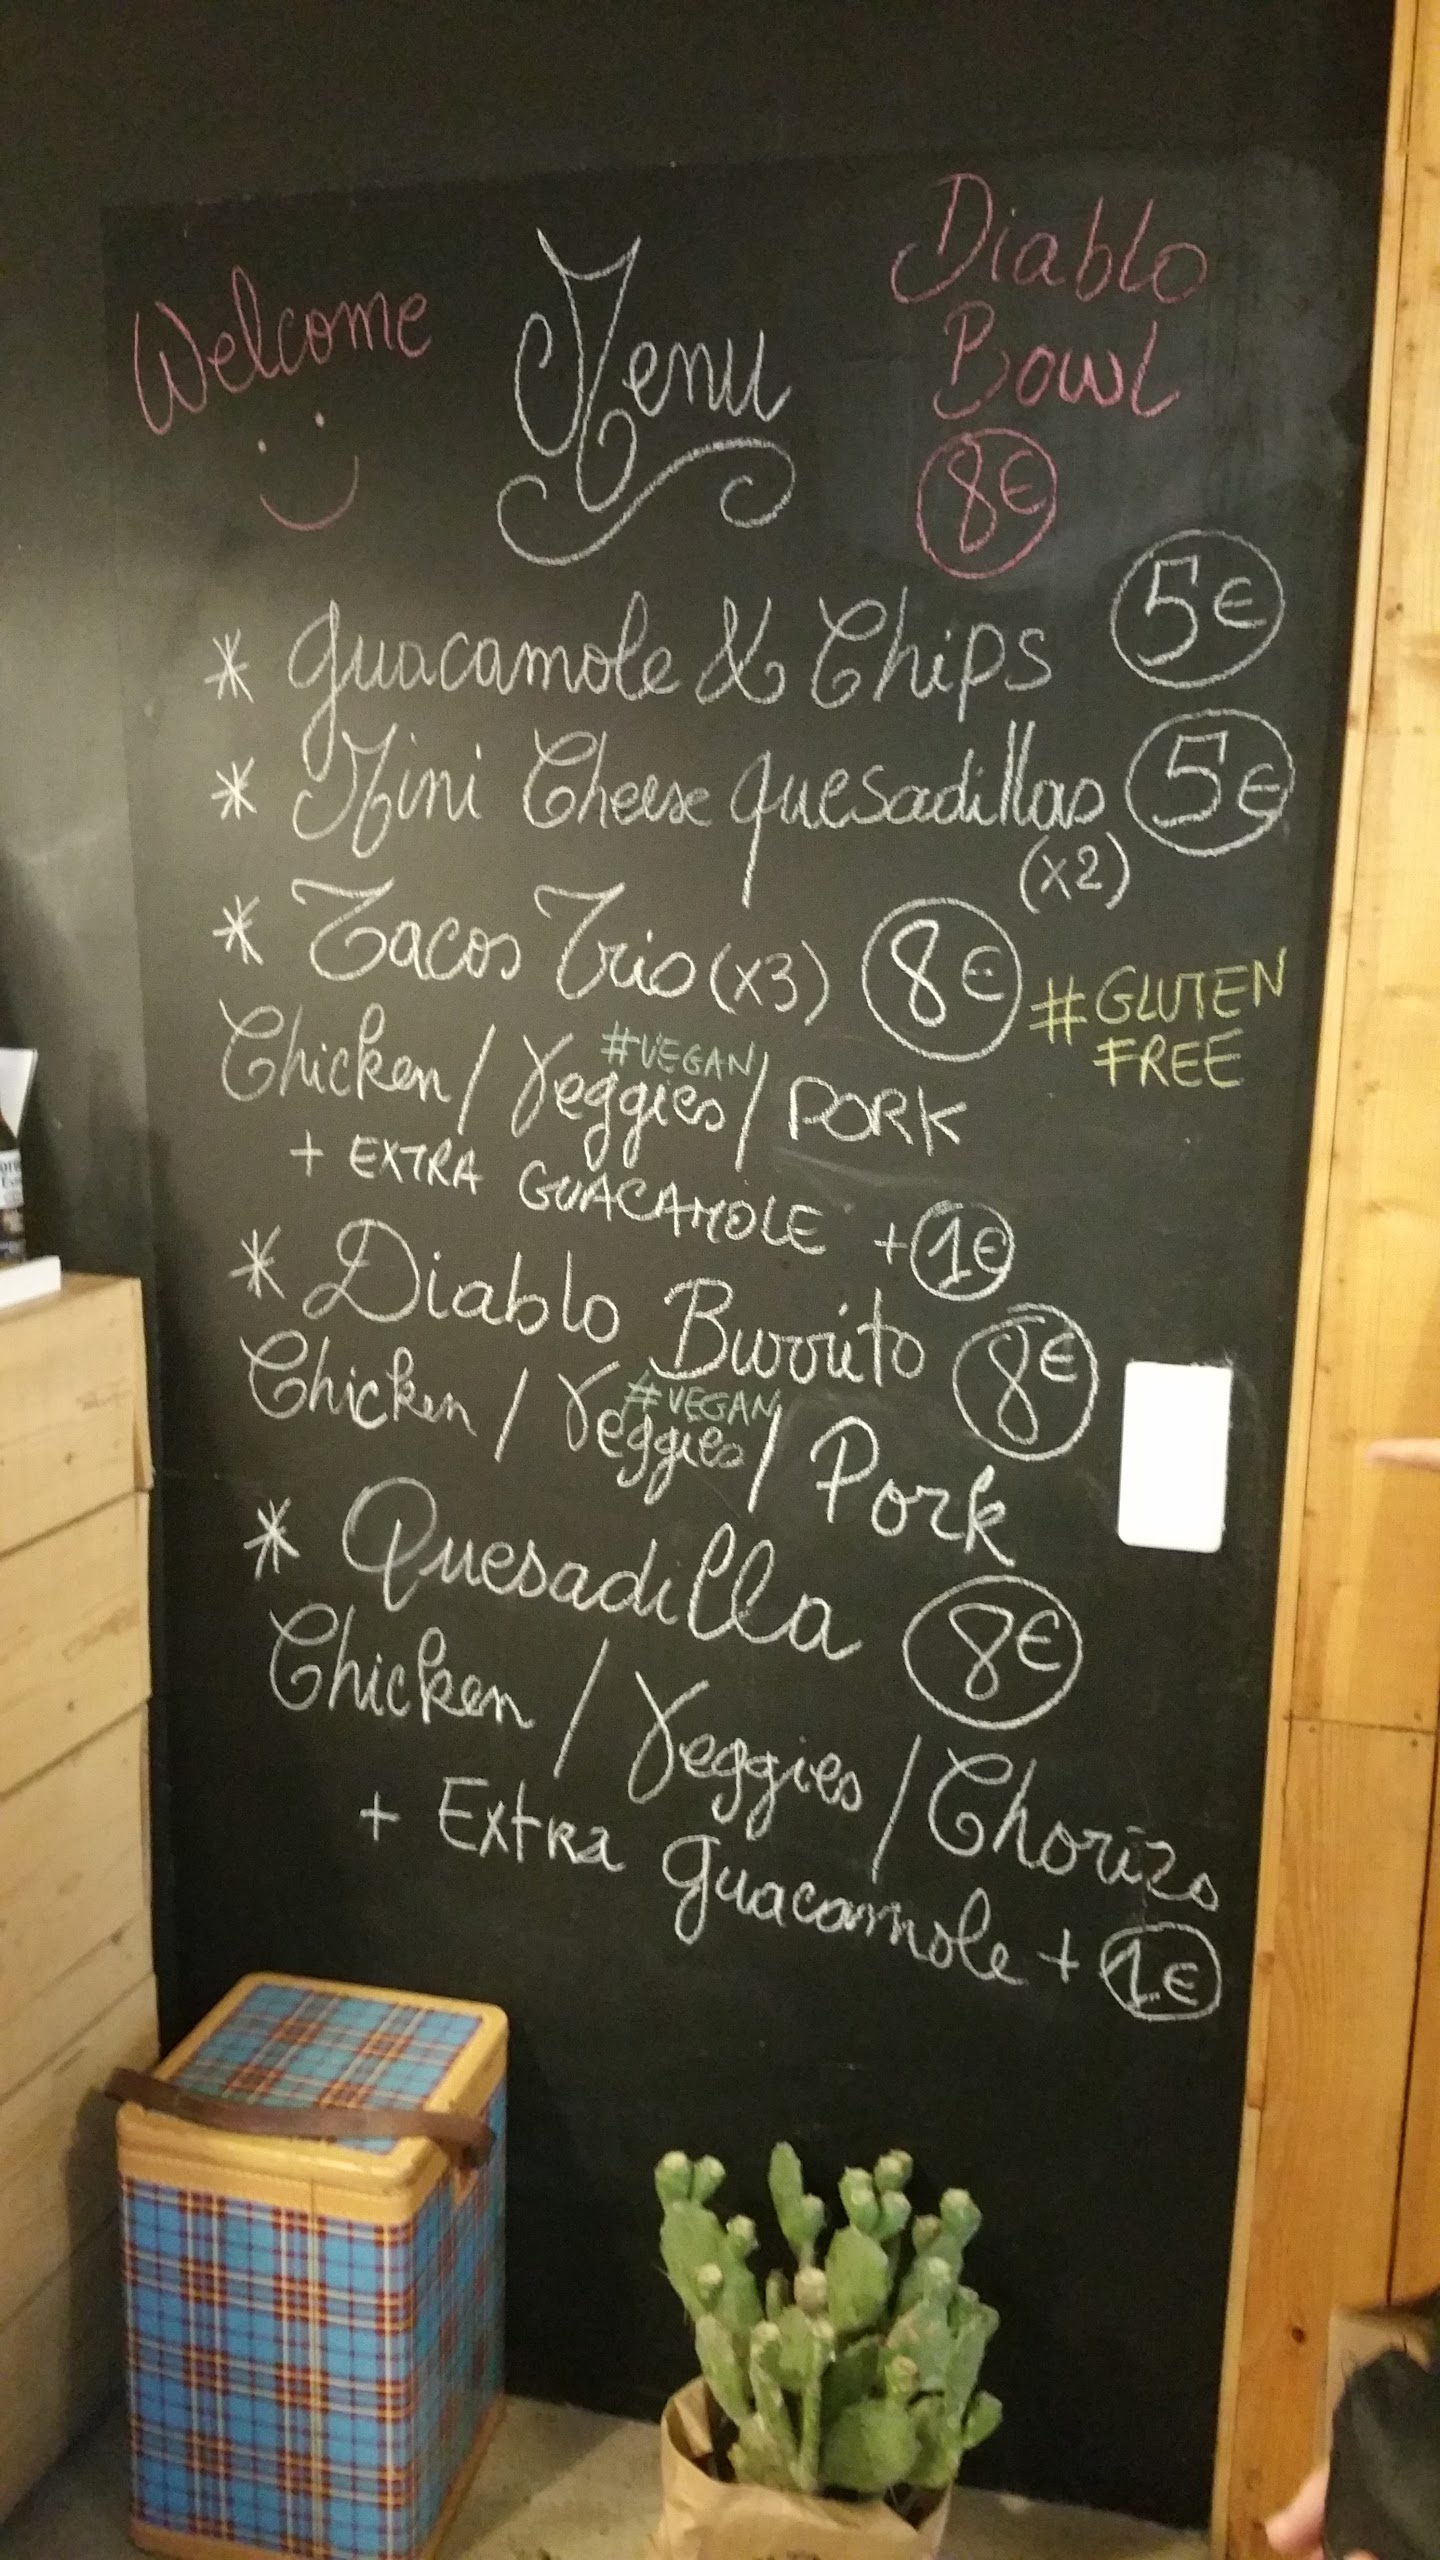 Welcome
Menu
Diablo
Bowl
8€
* Guacamole & Chips 5€
* Mini Cheese quesadillas 5€
(x2)
* Tacos Trio (x3) 8€ #GLUTEN
FREE
#VEGAN
Chicken / Veggies / PORK
+ EXTRA GUACAMOLE + 1€
* Diablo Burrito 8€
#VEGAN
Chicken / Veggies / Pork
* Quesadilla 8€
Chicken / Veggies / Chorizo
+ Extra guacamole + 1€